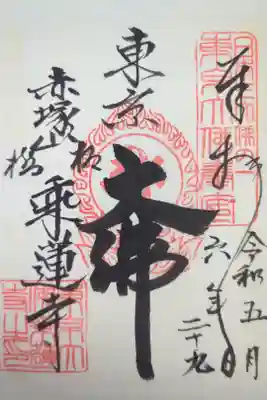 奉拝
令和六年
五月二十九日
東京
大佛
板橋
赤塚山
乗蓮寺